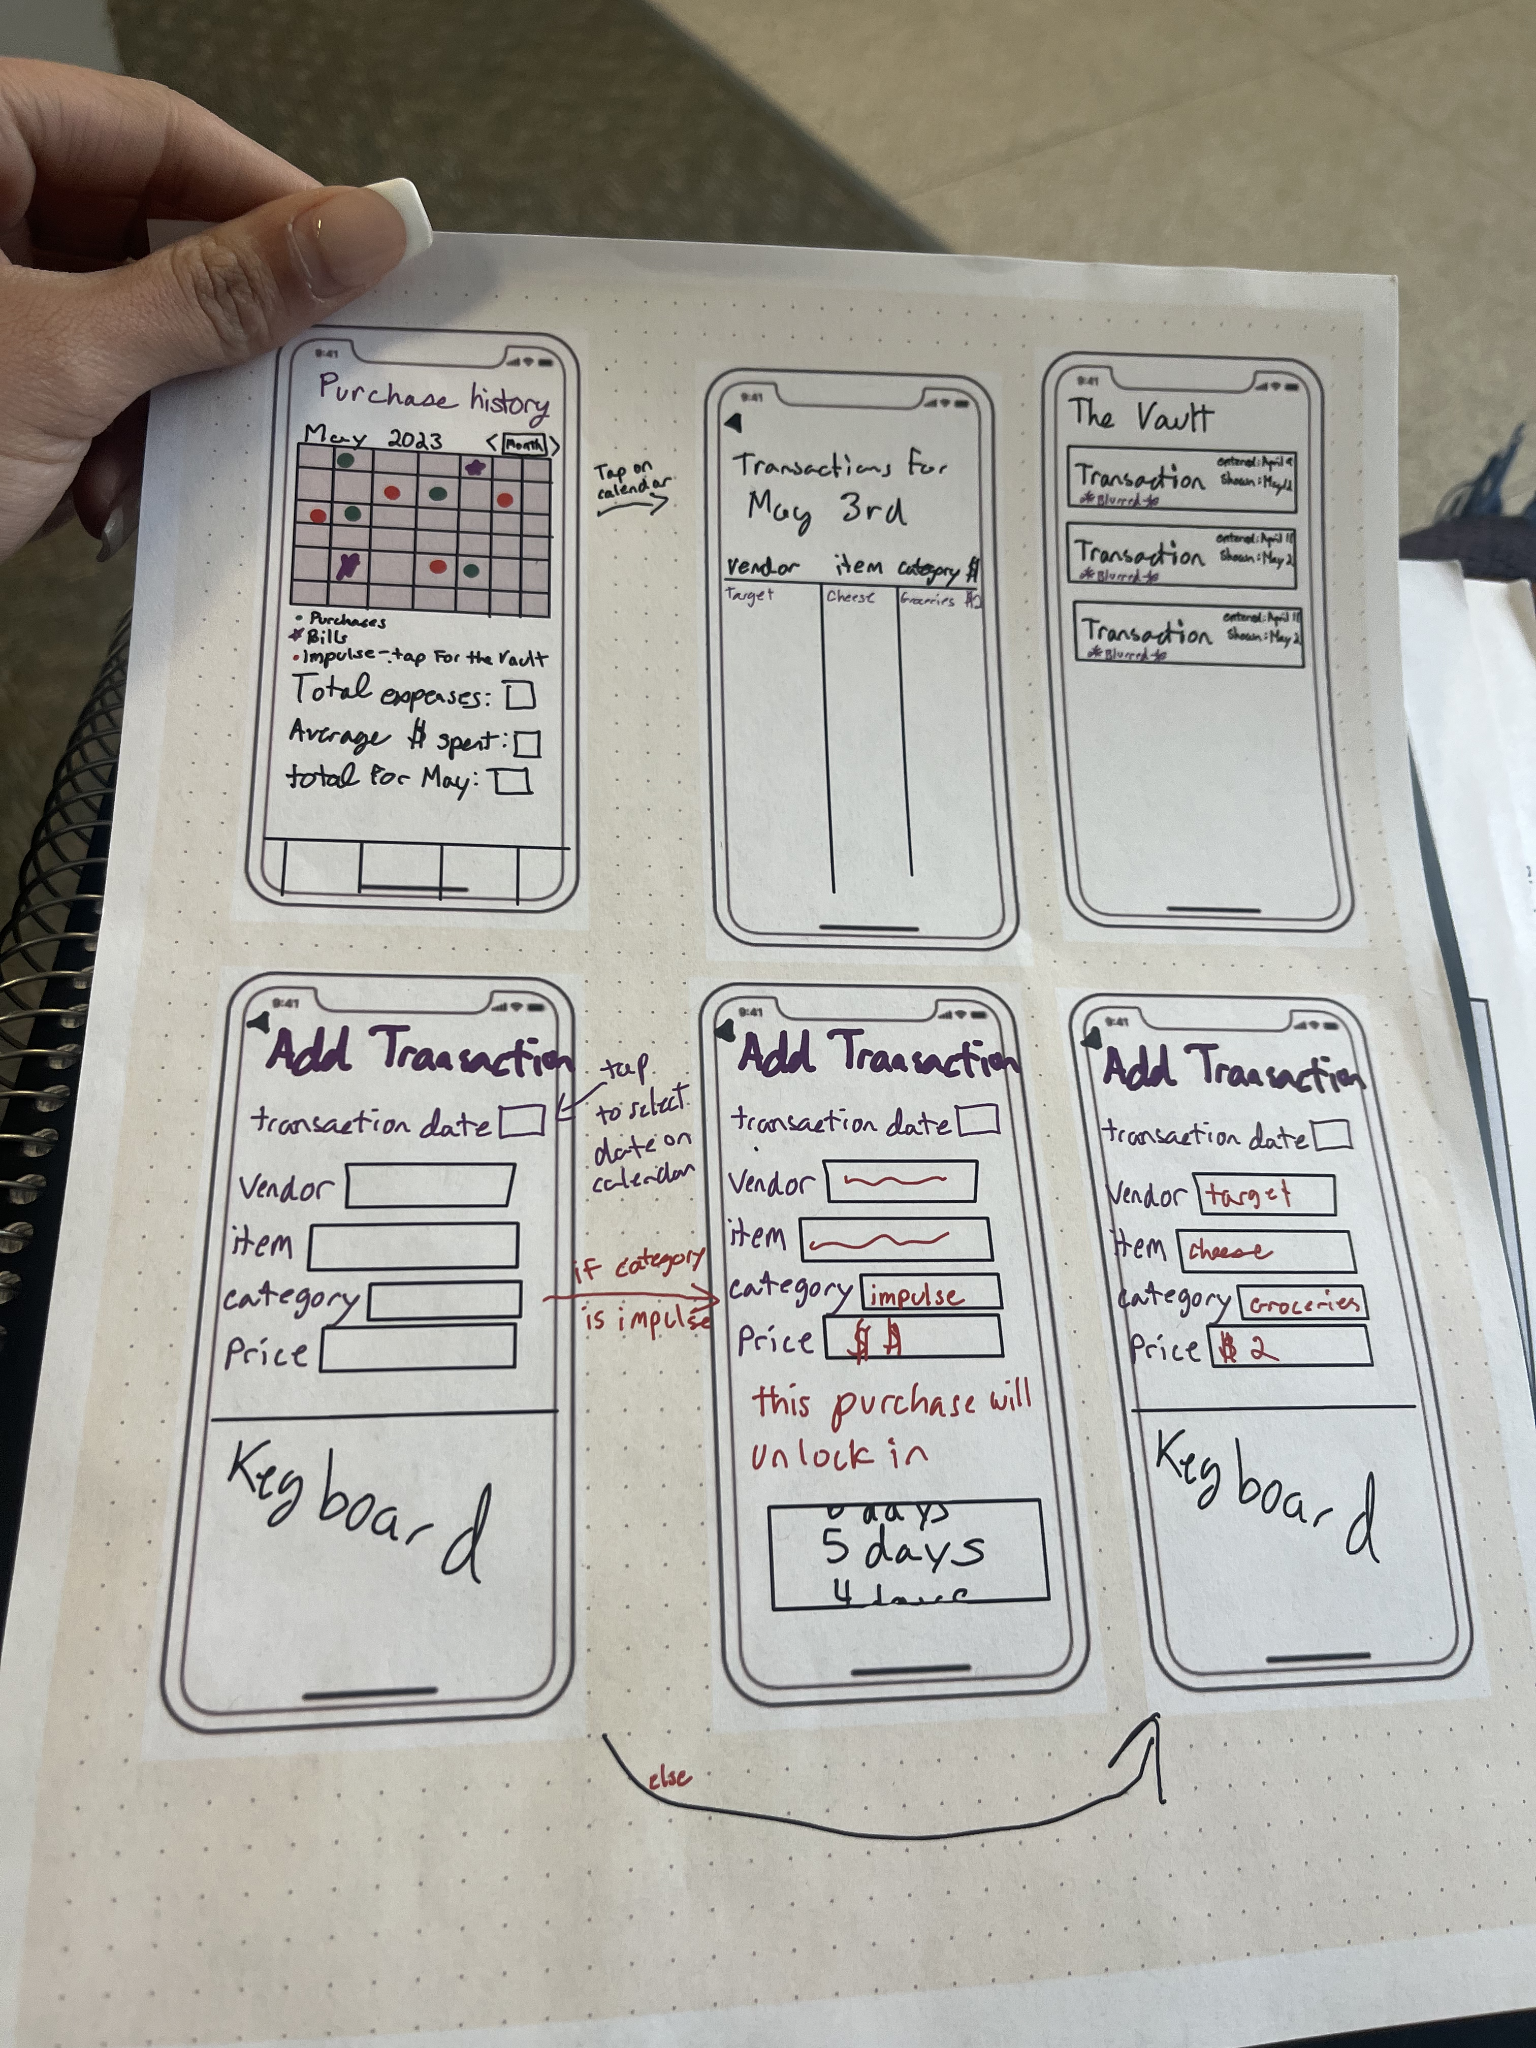 9:41
Purchase history
May 2023 < Month >
• Purchases
Bills
• Impulse - tap For the Vault
Total expenses:
Average $ spent:
total For May:
Tap on
calendar
9:41
Transactions For
May 3rd
vendor item category $
Target Cheese Groceries $2
9:41
The Vault
Transaction
entered: April 9
Shown: May 2
*Blurred*
Transaction
entered: April 11
Shown: May 2
*Blurred*
Transaction
entered: April 11
Shown: May 2
*Blurred*
9:41
Add Transaction
transaction date
Vendor
item
category
Price
Keyboard
tap
to select
date on
calendar
if category
is impulse
9:41
Add Transaction
transaction date
Vendor
item
category impulse
Price $ $
this purchase will
unlock in
days
5 days
4 days
9:41
Add Transaction
transaction date
Vendor target
item cheese
category Groceries
Price $ 2
Keyboard
else